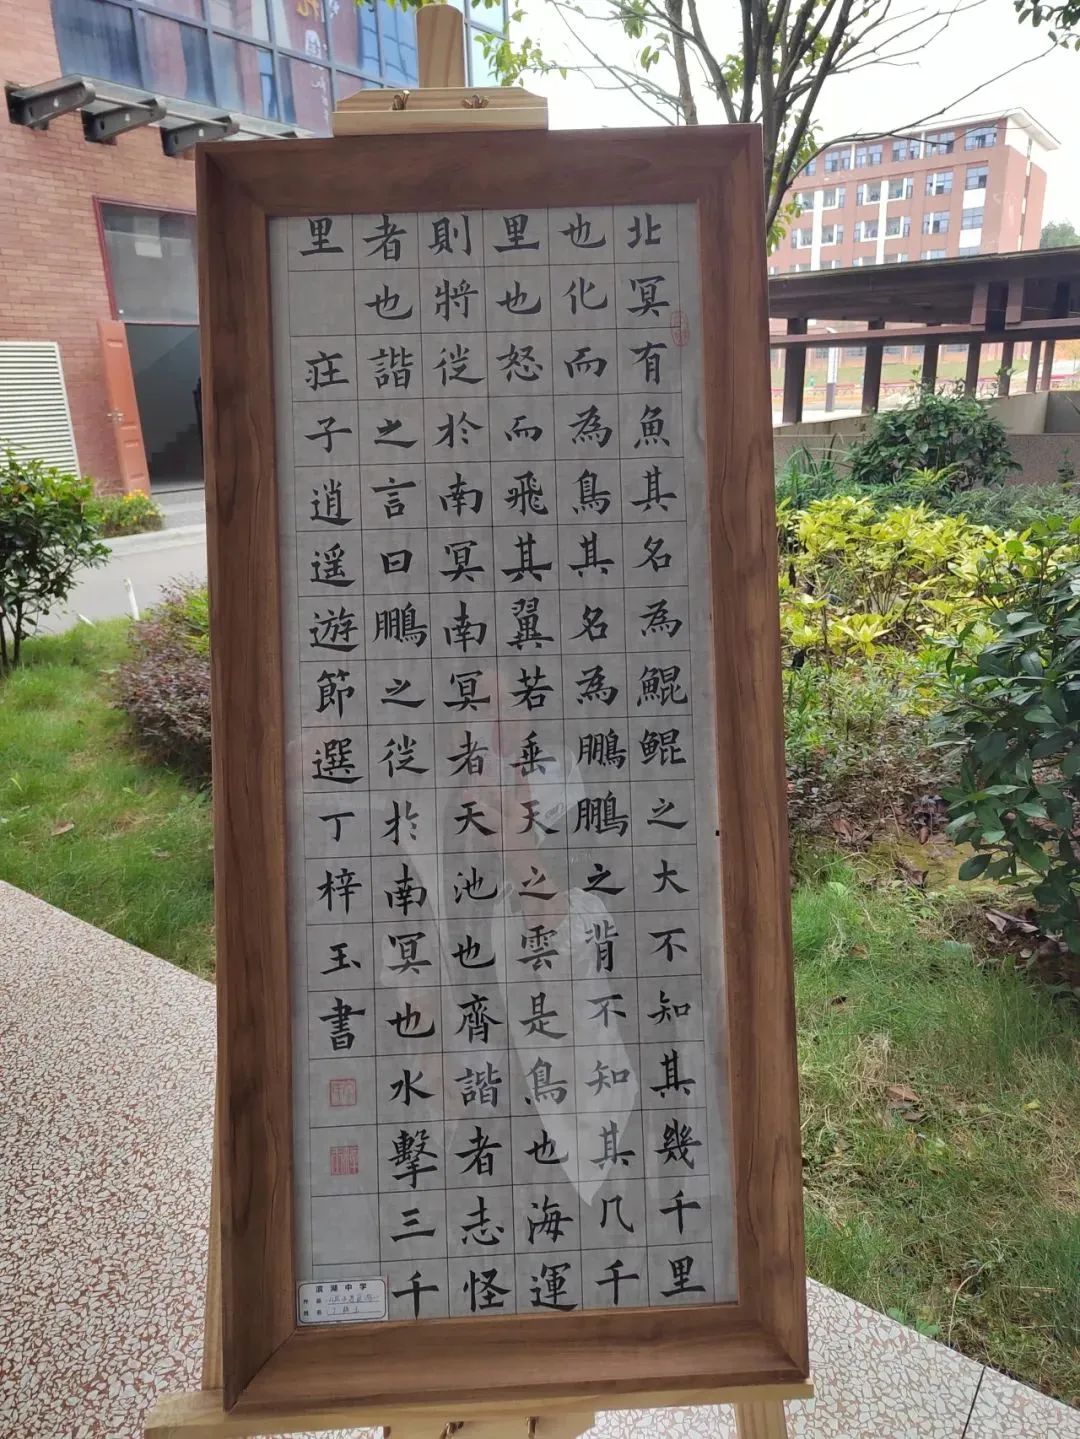 北冥有魚其名為鯤鲲之大不知其幾千里
也化而為鳥其名為鵬鵬之背不知其几千
里也怒而飛其翼若垂天之雲是鳥也海運
則將徙於南冥南冥者天池也齊諧者志怪
者也諧之言曰鵬之徙於南冥也水擊三千
里 庄子逍遥遊節選丁梓玉書
滨湖中学